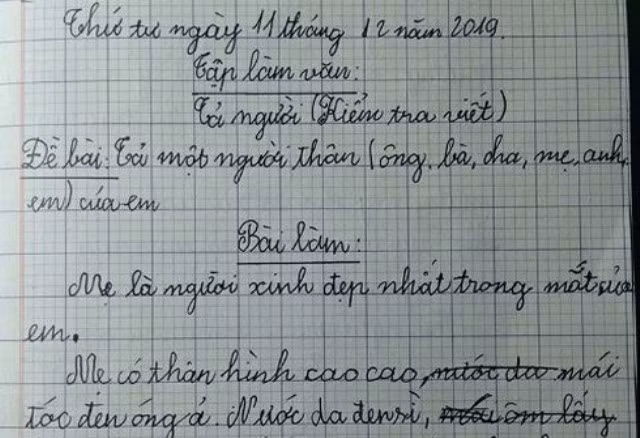 Thứ tư ngày 11 tháng 12 năm 2019.
Tập làm văn:
Tả người (Kiểm tra viết)
Đề bài: Tả một người thân (ông, bà, cha, mẹ, anh,
em) của em
Bài làm:
Mẹ là người xinh đẹp nhất trong mắt của
em.
Mẹ có thân hình cao cao, nước da mái
tóc đen óng ả. Nước da đen sì, ôm lấy